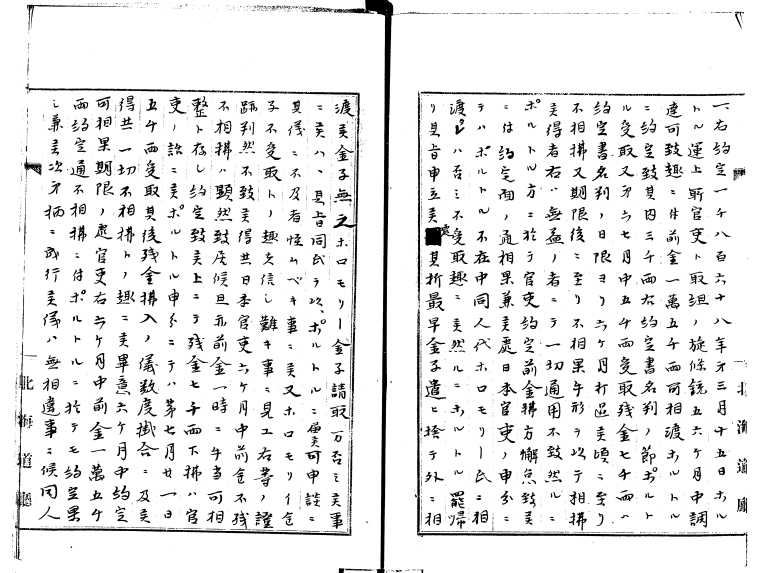 一右約定一千八百六十八年第三月十五日ホル
トル運上所官吏ト取組ノ旋條銃五六ケ月中調
達可致趣ニ付前金一萬五千両可相渡ホルトル
ニ約定致其内三千両右約定書名判ノ節ポルト
ル受取又第六七月中五千両受取残金七千両ハ
約定書名判ノ日限ヨリ六ケ月打過美頃ニ至り
不相拂又期限後ニ至り不相果手形ヲ以テ相拂
美得者右ハ無益ノ者ニテ一切通用不致然ルニ
ポルトル方ニ於テ官吏約定前金拂方懈怠致美
ニ付約定面ノ通相果兼美處日本官吏ノ申分ニ
テハポルトル不在中同人代ホロモリー氏ニ相
渡ハ否ミ不受取趣ニ美然ルニホルトル罷帰
り其旨申立美處其折最早金子遣ヒ捨テ外ニ相
渡美金子無之ホロモリー金子請取方否ミ美事
ニ美ハヽ其旨同氏ヲ以ポルトルニ可申談ニ
其儀ニ不及者怪ムベキ事ニ美又ホロモリイ金
子不受取トノ趣支信シ難キ事ニ見エ右等ノ證
跡判然不致美得共日本官吏六ケ月中前金不残
不相拂ハ顕然致居候且亦前金一時ニ午當可相
整ト存シ約定致美上ニテ残金七千両下拂ハ官
吏ノ訟ニ美ポルトル申分ニテハ第七月廿一日
五千両受取其後残金拂入ノ儀数度掛合ニ及美
得共一切不相拂トノ趣ニ美畢意六ケ月中約定
可相果期限ノ處官吏右六ケ月中前金一萬五千
両約定通不相拂ニ付ポルトルニ於テモ約定果
シ兼美次第柄ニ成行美儀ハ無相違事ニ候同人
北海道廳
北海道廳